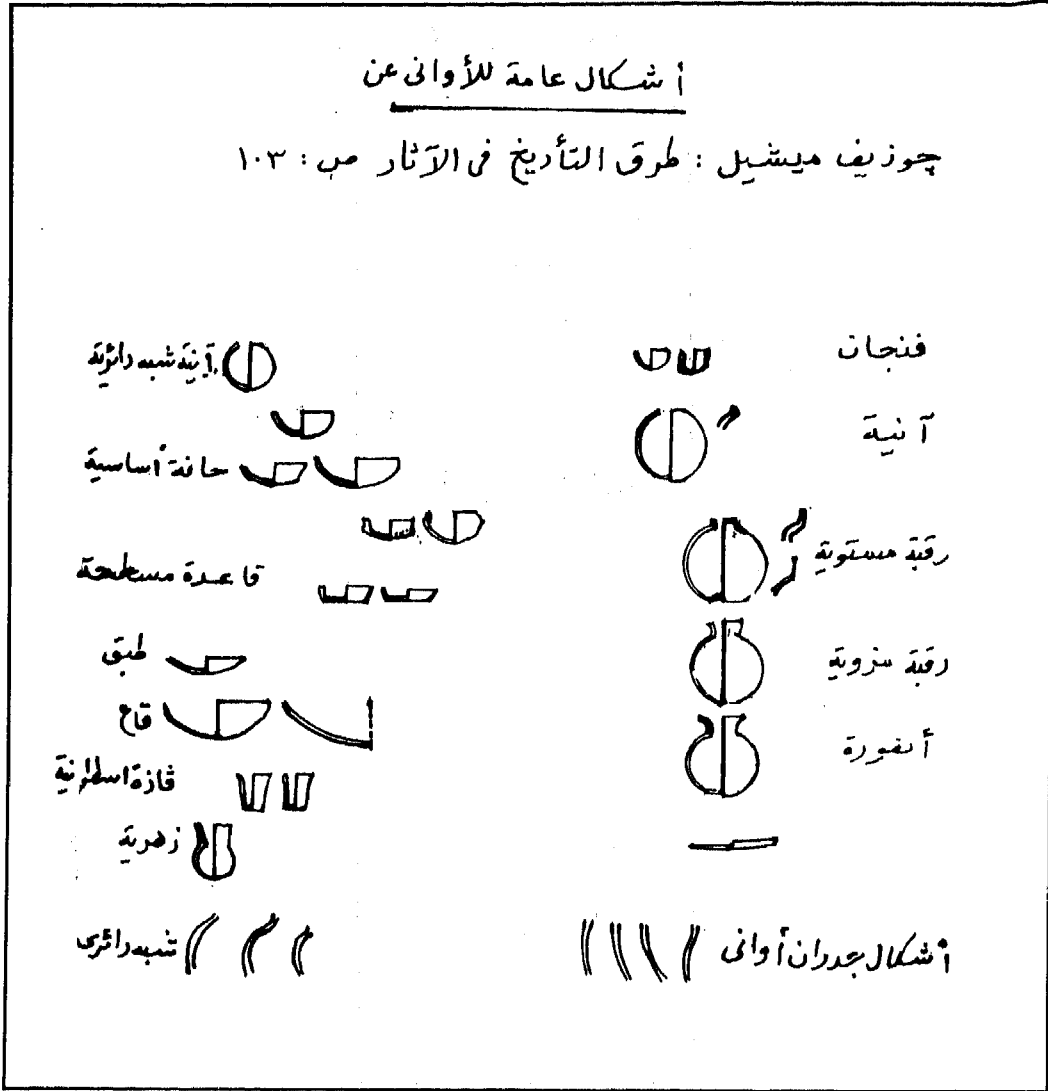 أشكال عامة للأوانى عن
چوزيف ميشيل : طرق التأريخ فى الآثار ص : ١٠٣
فنجان
آنية
رقبة مستوية
رقبة منزوية
أمفورة
أشكال جدران أوانى
آنية شبه دائرية
حافة أساسية
قاعدة مسطحة
طبق
قاع
فازة اسطوانية
زهرية
شبه دائرى